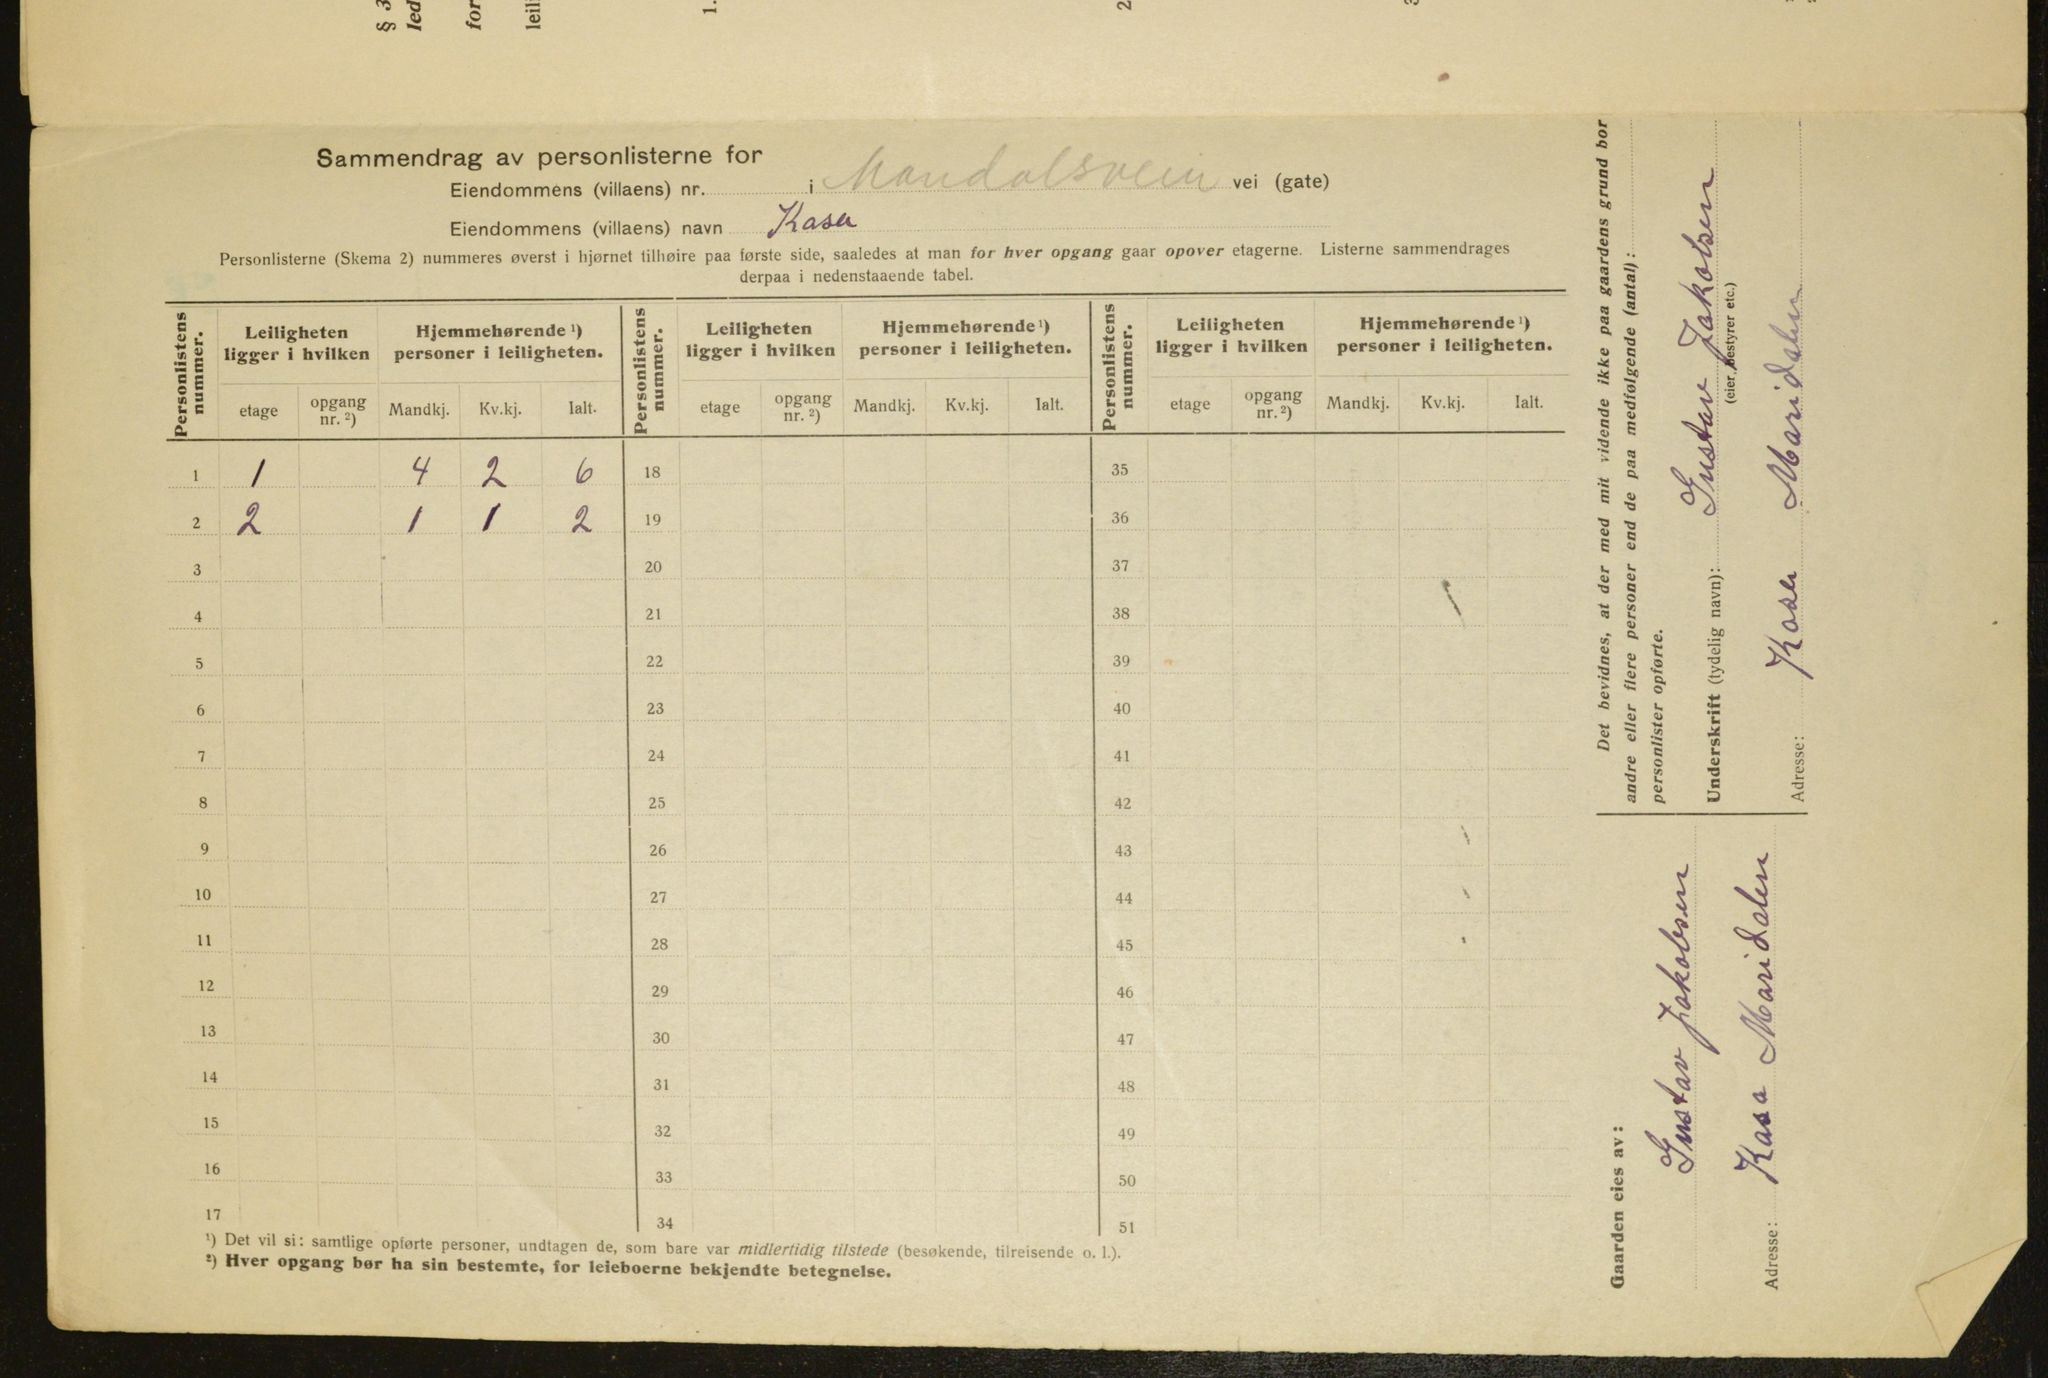 § 3
led
for
leil
1.
2
3
Sammendrag av personlisterne for
Eiendommens (villaens) nr. i vei (gate)
Eiendommens (villaens) navn Kasa
Personlisterne (Skema 2) nummeres øverst i hjørnet tilhøire paa første side, saaledes at man for hver opgang gaar opover etagerne. Listerne sammendrages
derpaa i nedenstaaende tabel.
Personlistens nummer. Leiligheten ligger i hvilken Hjemmehørende ¹) personer i leiligheten. Personlistens nummer. Leiligheten ligger i hvilken Hjemmehørende ¹) personer i leiligheten. Personlistens nummer. Leiligheten ligger i hvilken Hjemmehørende ¹) personer i leiligheten.
etage opgang nr. ²) Mandkj. Kv.kj. Ialt. etage opgang nr. ²) Mandkj. Kv.kj. Ialt. etage opgang nr. ²) Mandkj. Kv.kj. Ialt.
1 1 4 2 6 18 35
2 2 1 1 2 19 36
3 20 37
4 21 38
5 22 39
6 23 40
7 24 41
8 25 42
9 26 43
10 27 44
11 28 45
12 29 46
13 30 47
14 31 48
15 32 49
16 33 50
17 34 51
¹) Det vil si: samtlige opførte personer, undtagen de, som bare var midlertidig tilstede (besøkende, tilreisende o. l.).
²) Hver opgang bør ha sin bestemte, for leieboerne bekjendte betegnelse.
Det bevidnes, at der med mit vidende ikke paa gaardens grund bor
andre eller flere personer end de paa medfølgende (antal):
personlister opførte.
Underskrift (tydelig navn): Gustav Jakobsen
(eier, bestyrer etc.)
Adresse: Kasa Maridalen
Gaarden eies av:
Gustav Jakobsen
Adresse: Kasa Maridalen